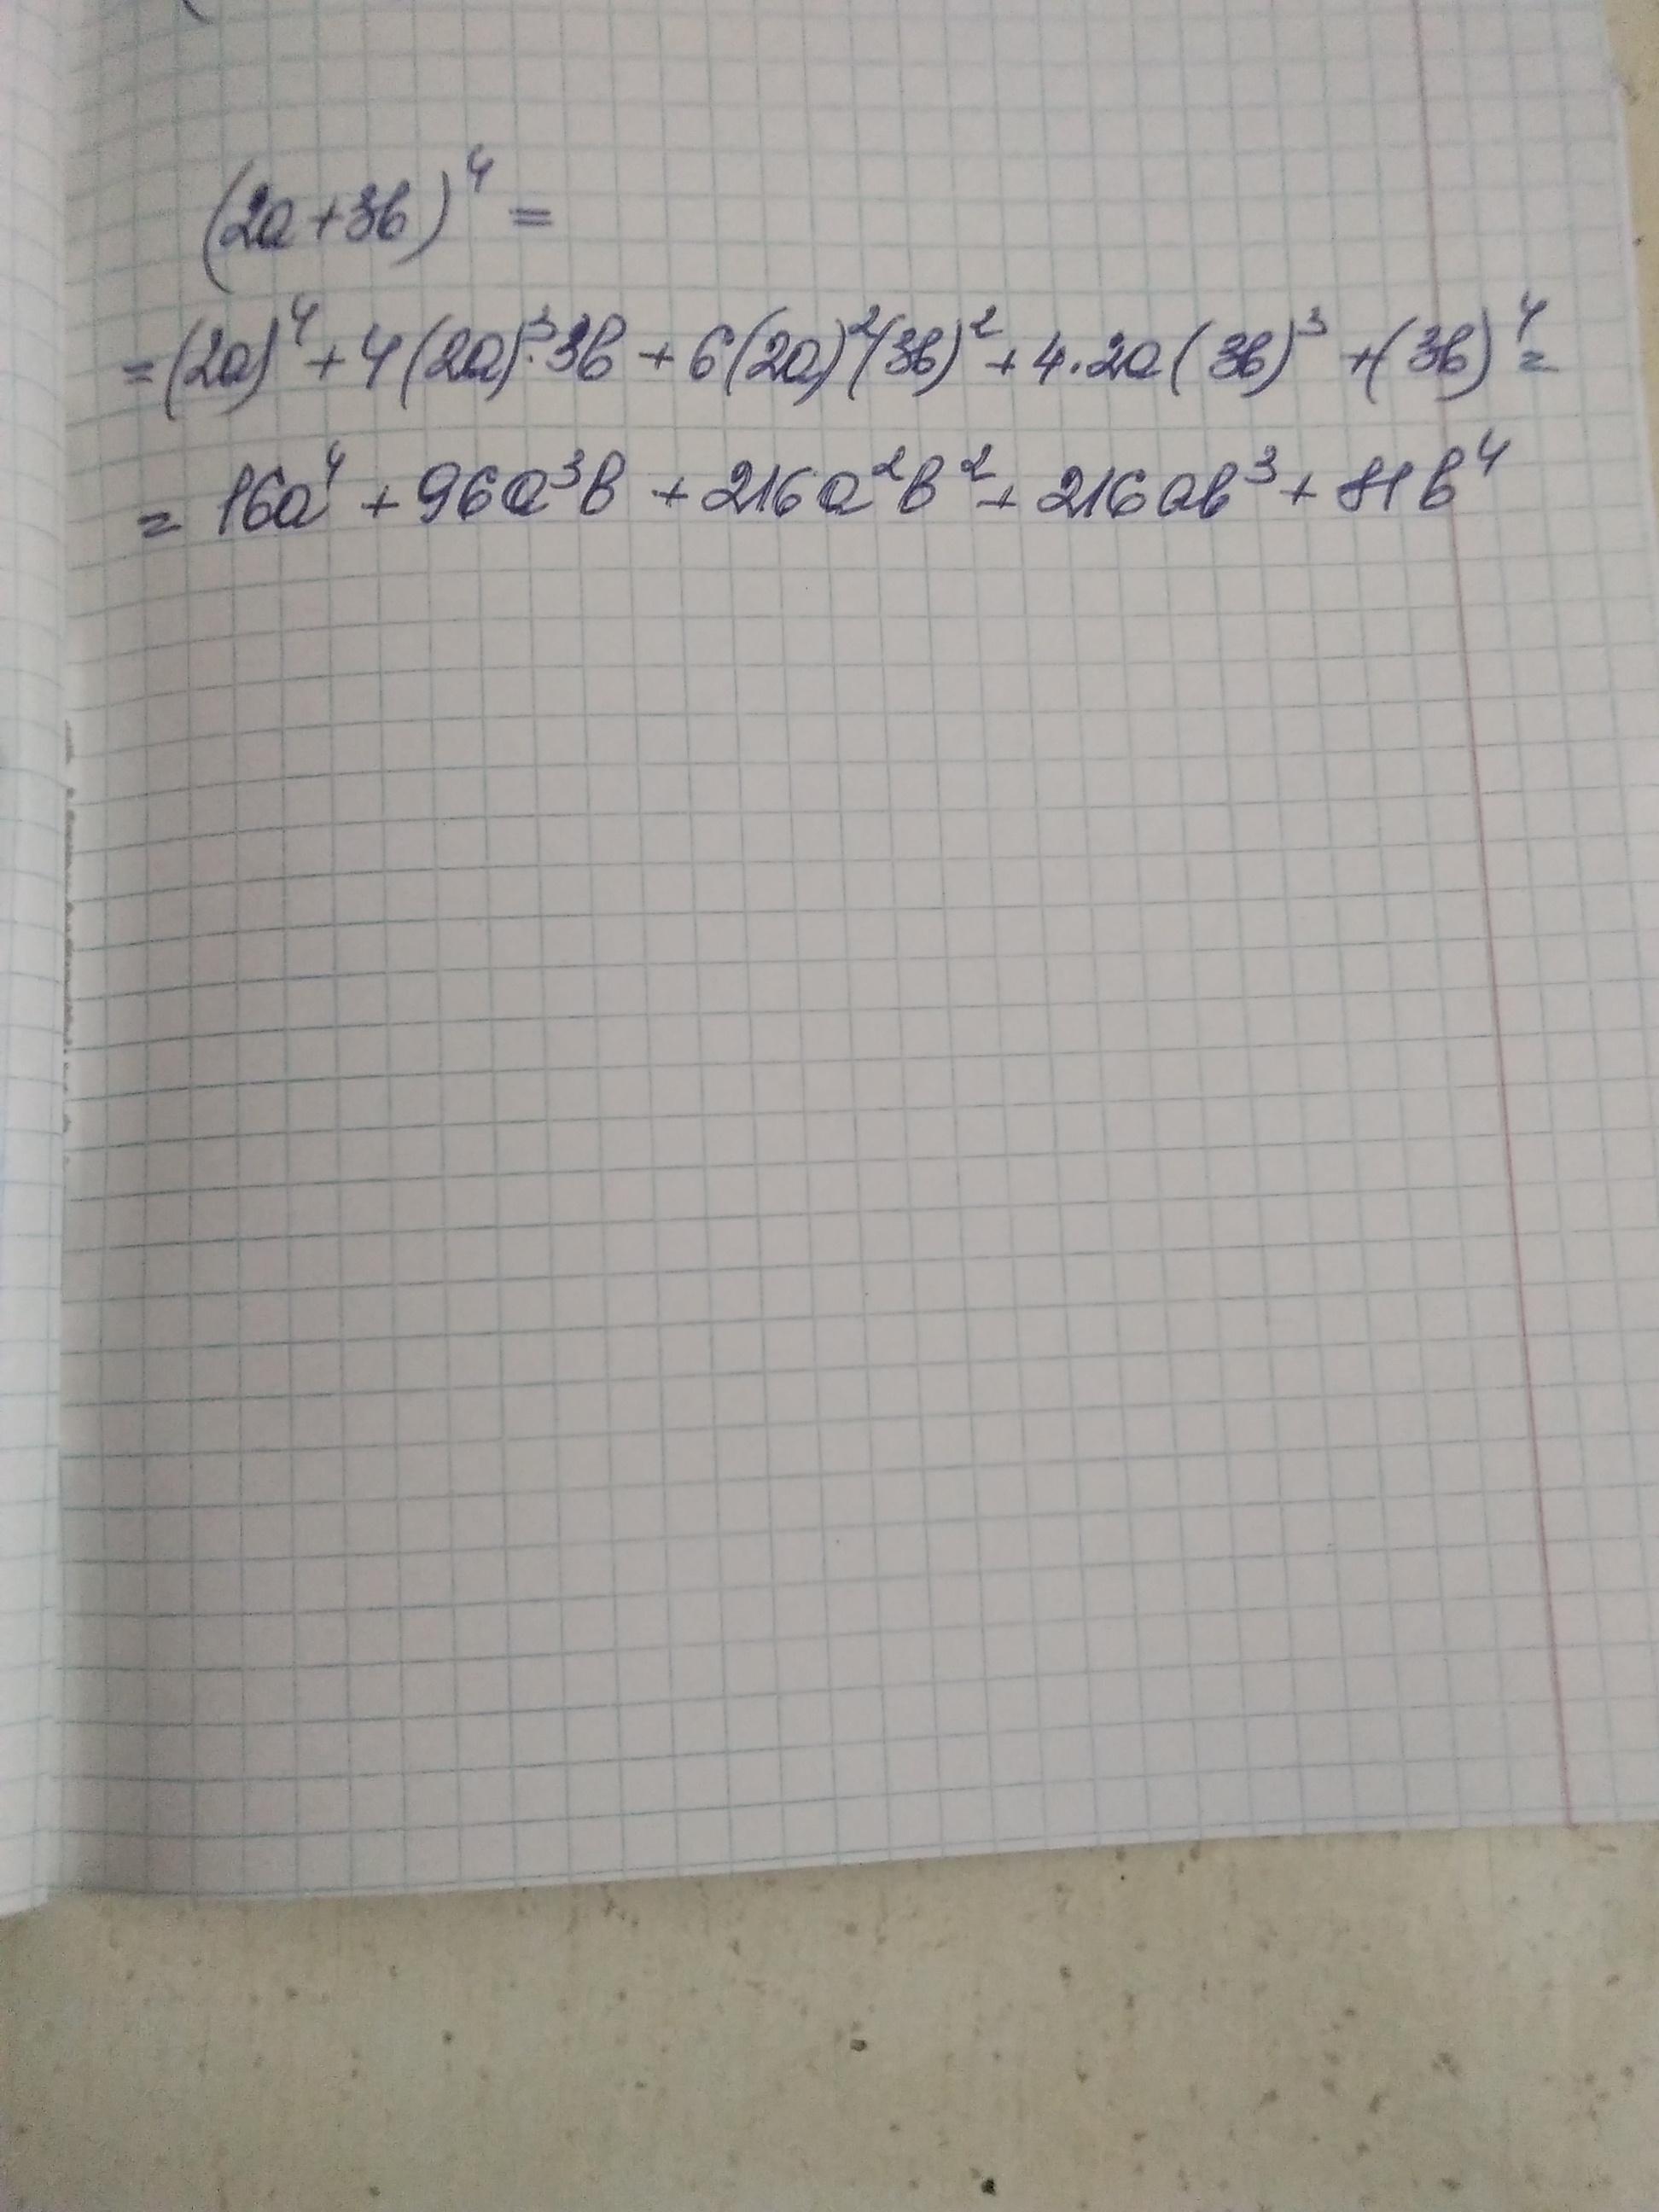 (2a+3b)⁴ =
=(2a)⁴+4(2a)³·3b+6(2a)²(3b)²+4·2a(3b)³+(3b)⁴=
= 16a⁴+96a³b+216a²b²+216ab³+81b⁴